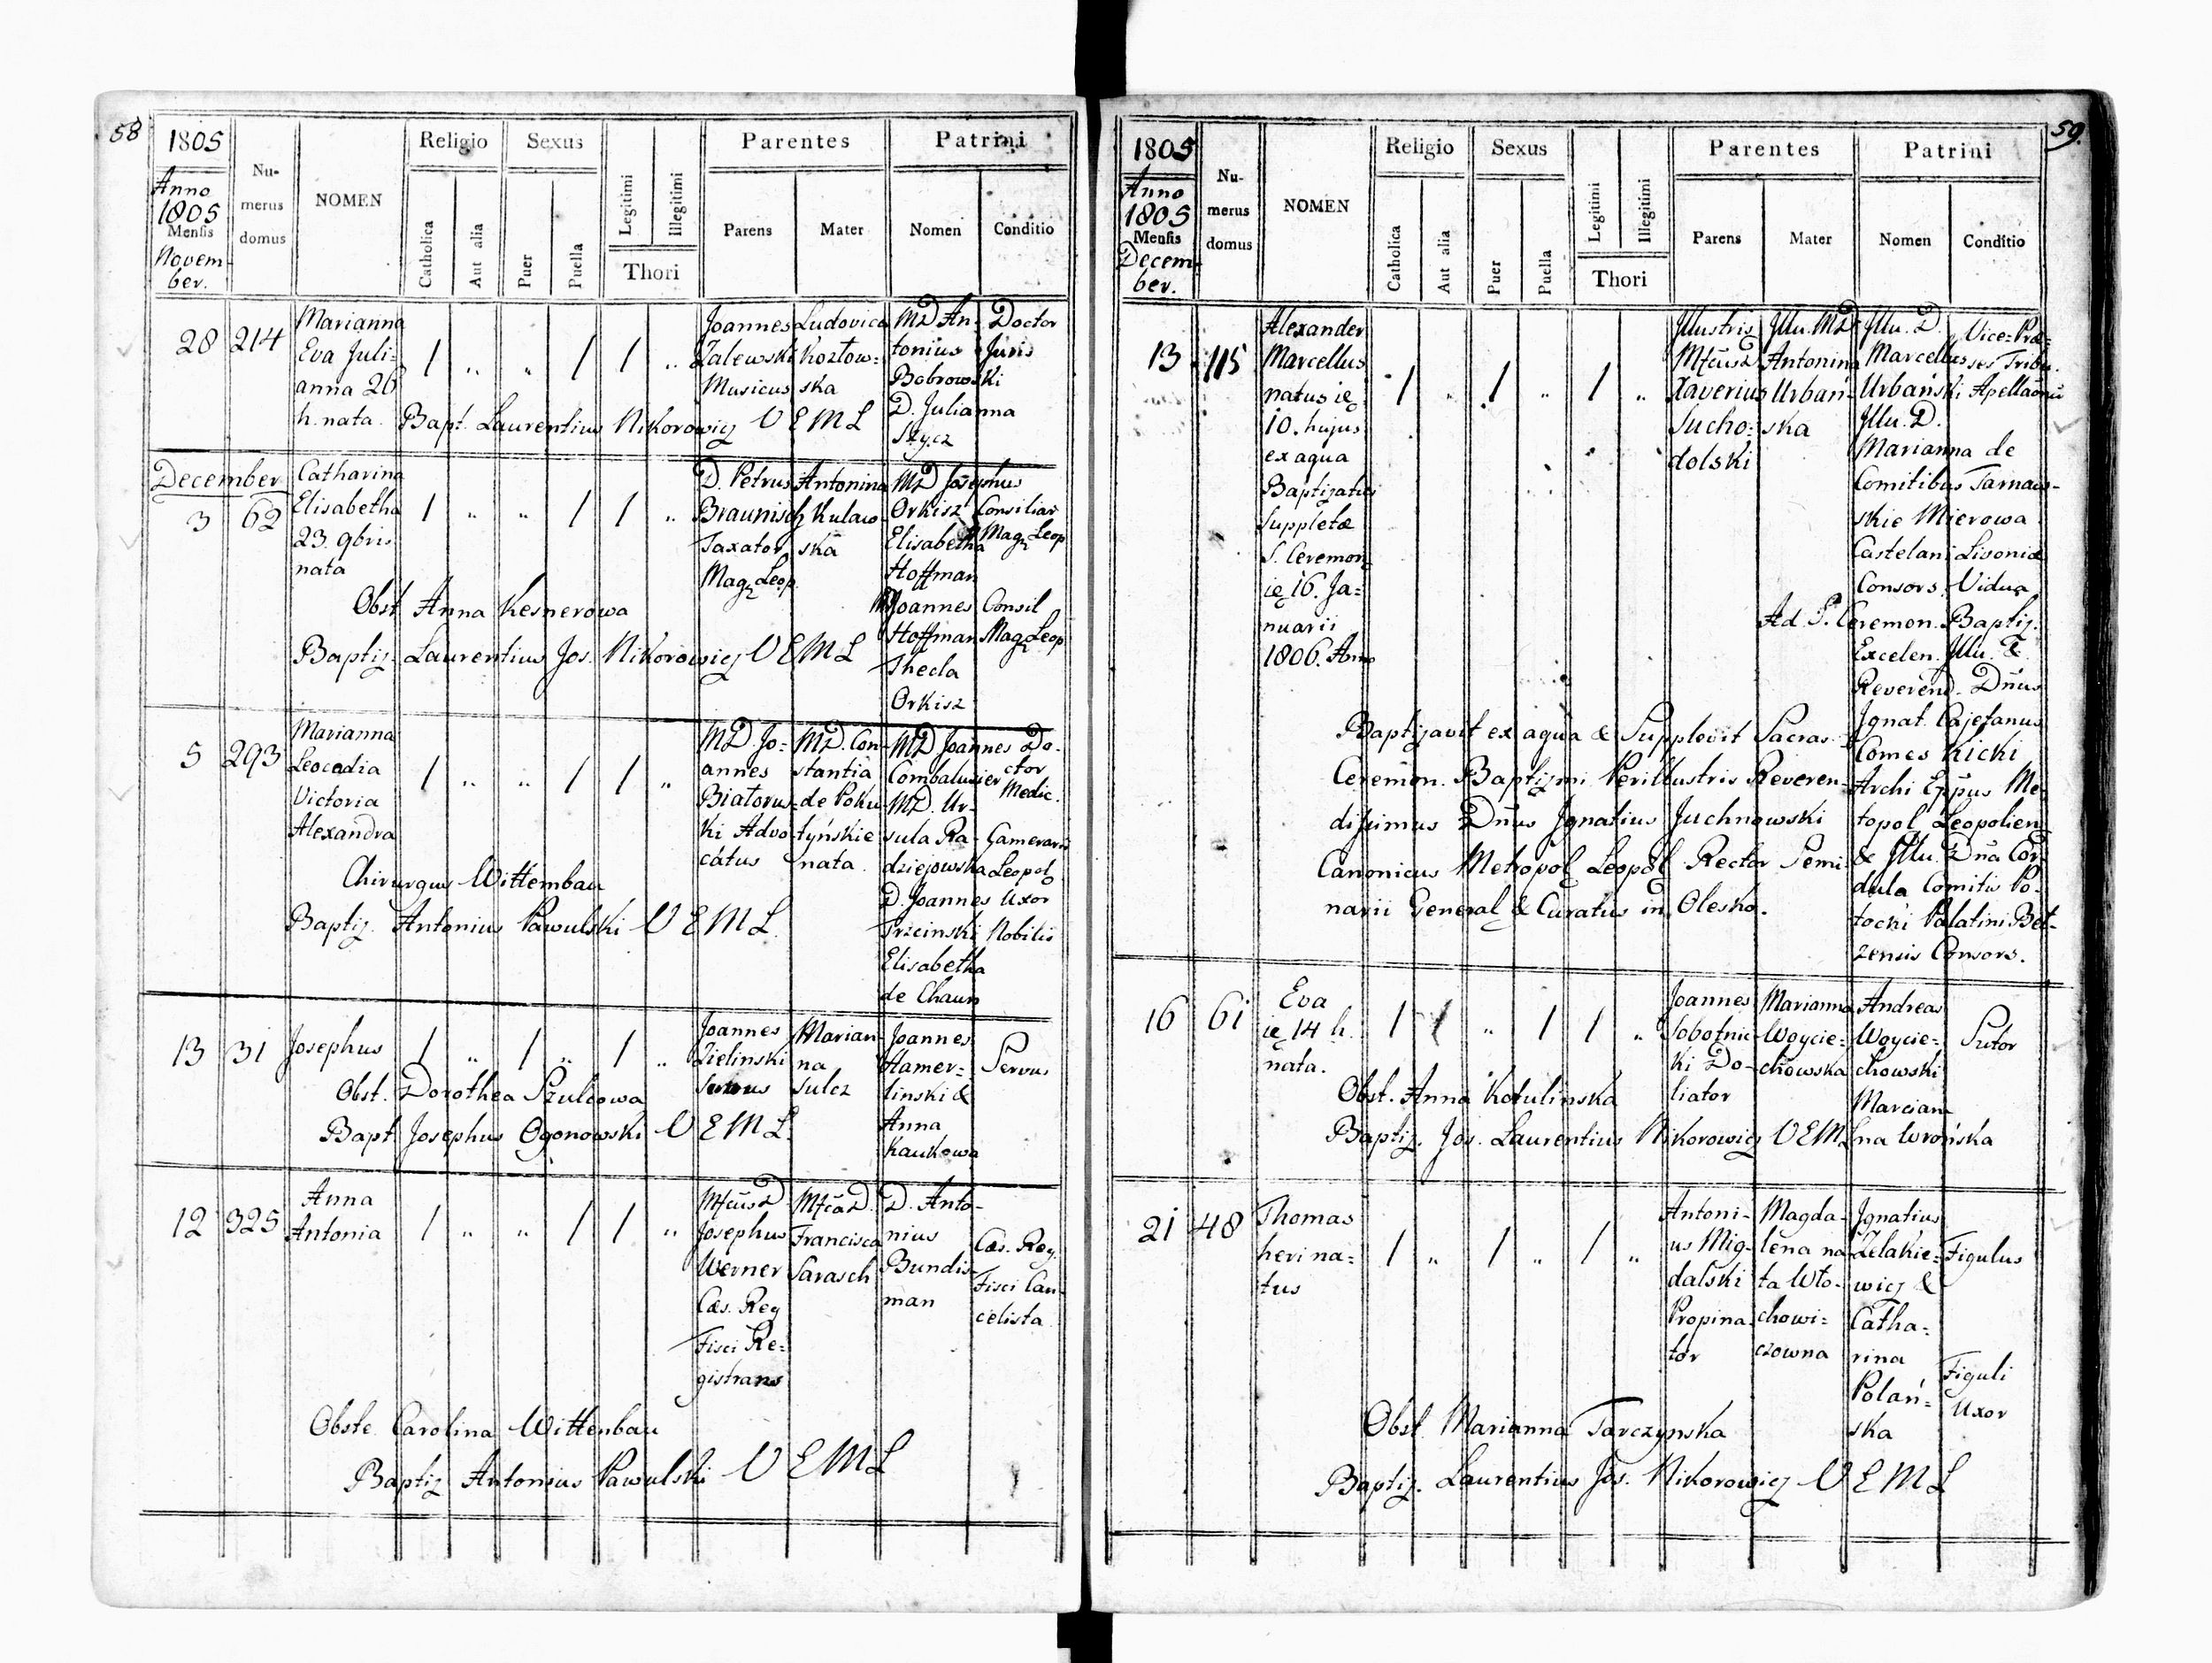 58
1805
Anno
1805
Mensis
Novem-
ber.
Nu-
merus
domus
NOMEN
Religio
Catholica
Aut alia
Sexus
Puer
Puella
Legitimi
Illegitimi
Thori
Parentes
Parens
Mater
Patrini
Nomen
Conditio
28
214
Marianna
Eva Juli=
anna 26
h. nata.
/ „ „ / / „
Joannes
Zalewski
Musicus
Ludovica
Kozłow=
ska
MD An-
tonius
Bobrowski
D. Julianna
Szycz
Doctor
Juris
Bapt. Laurentius Nikorowicz V E M L
December
3
62
Catharina
Elisabetha
23. 9bris
nata
/ „ „ / / „
D. Petrus
Braunisch
Taxator
Mag. Leop.
Antonina
Kulaw-
ska
MD Josephus
Orkisz
Elisabetha
Hoffman
Joannes
Hoffman
Thecla
Orkisz
Consiliar
Mag. Leop
Consil
Mag. Leop
Obst. Anna Kesnerowa
Baptiz. Laurentius Jos. Nikorowicz V E M L
5
293
Marianna
Leocadia
Victoria
Alexandra
/ „ „ / / „
MD. Jo=
annes
Biatorus-
ki Advo-
catus
MD. Con-
stantia
de Poku-
tyńskie
nata.
MD Joannes Do-
Combalusier ctor
Medic.
MD. Ur-
sula Ra-
dziejowska
D. Joannes
Trzcinski
Elisabetha
de Chaun
Camerarii
Leopol
Uxor
Nobilis
Chirurgus Wittembau
Baptiz. Antonius Pawulski V E M L.
13
31
Josephus
/ „ / „ / „
Joannes
Zielinski
Servus
Marian-
na
Sulcz
Joannes
Hamer=
linski &
Anna
Kaukowa
Servus
Obst. Dorothea Szulcowa
Bapt. Josephus Ogonowski V E M L.
12
325
Anna
Antonia
/ „ „ / / „
Mfcus D.
Josephus
Werner
Cæs. Reg
Fisci Re=
gistrans
Mfca D.
Francisca
Sarasch
D. Anto-
nius
Bundis-
man
Cæs. Reg.
Fisci Can-
celista
Obste. Carolina Wittenbau
Baptiz Antonius Pawulski V E M L
59.
1805
Anno
1805
Mensis
Decem-
ber.
Nu-
merus
domus
NOMEN
Religio
Catholica
Aut alia
Sexus
Puer
Puella
Legitimi
Illegitimi
Thori
Parentes
Parens
Mater
Patrini
Nomen
Conditio
13
115
Alexander
Marcellus
natus ie
10. hujus
ex aqua
Baptizatus
Suppletæ
S. Ceremon
ie 16. Ja=
nuarii
1806. Anno
/ „ / „ / „
Illustris
Mfcus D
Xaverius
Sucho=
dolski
Illu. MD
Antonina
Urbań-
ska
Illu. D.
Marcellus
Urbański
Illu. D.
Vice-Præ=
ses Tribu.
Apellationu
Marianna de
Comitibus Tarnaw-
skie Mierowa
Castelani Livoniæ
Consors. Vidua
Ad S. Ceremon. Baptiz.
Excelen. Illu. &
Reverend. Dnus
Ignat. Cajetanus
Comes Kicki
Archi Eppus Me-
topol Leopolien
& Illu. Dna Cor-
dula Comitis Po-
tocki Palatini Bel-
zensis Consors.
Baptizavit ex aqua & Supplevit Sacras
Ceremon. Baptizmi Perillustris Reveren-
dissimus Dnus Ignatius Juchnowski
Canonicus Metropol Leopol Rector Semi-
narii General & Curatus in Olesko.
16
61
Eva
ie 14 h.
nata.
/ / „ / / „
Joannes
Sobotnic-
ki Do-
liator
Marianna
Woycie-
chowska
Andreas
Woycie=
chowski
Marian-
na Wrońska
Sutor
Obst. Anna Kotulinska
Baptiz. Jos. Laurentius Nikorowicz V E M L
21
48
Thomas
heri na=
tus
/ „ / „ / „
Antoni-
us Mig-
dalski
Propina-
tor
Magda-
lena na-
ta Wło-
chowi=
czowna
Ignatius
Zelakie=
wicz &
Catha=
rina
Polań=
ska
Figulus
Figuli
Uxor
Obst. Marianna Tarczynska
Baptiz. Laurentius Jos. Nikorowicz V E M L